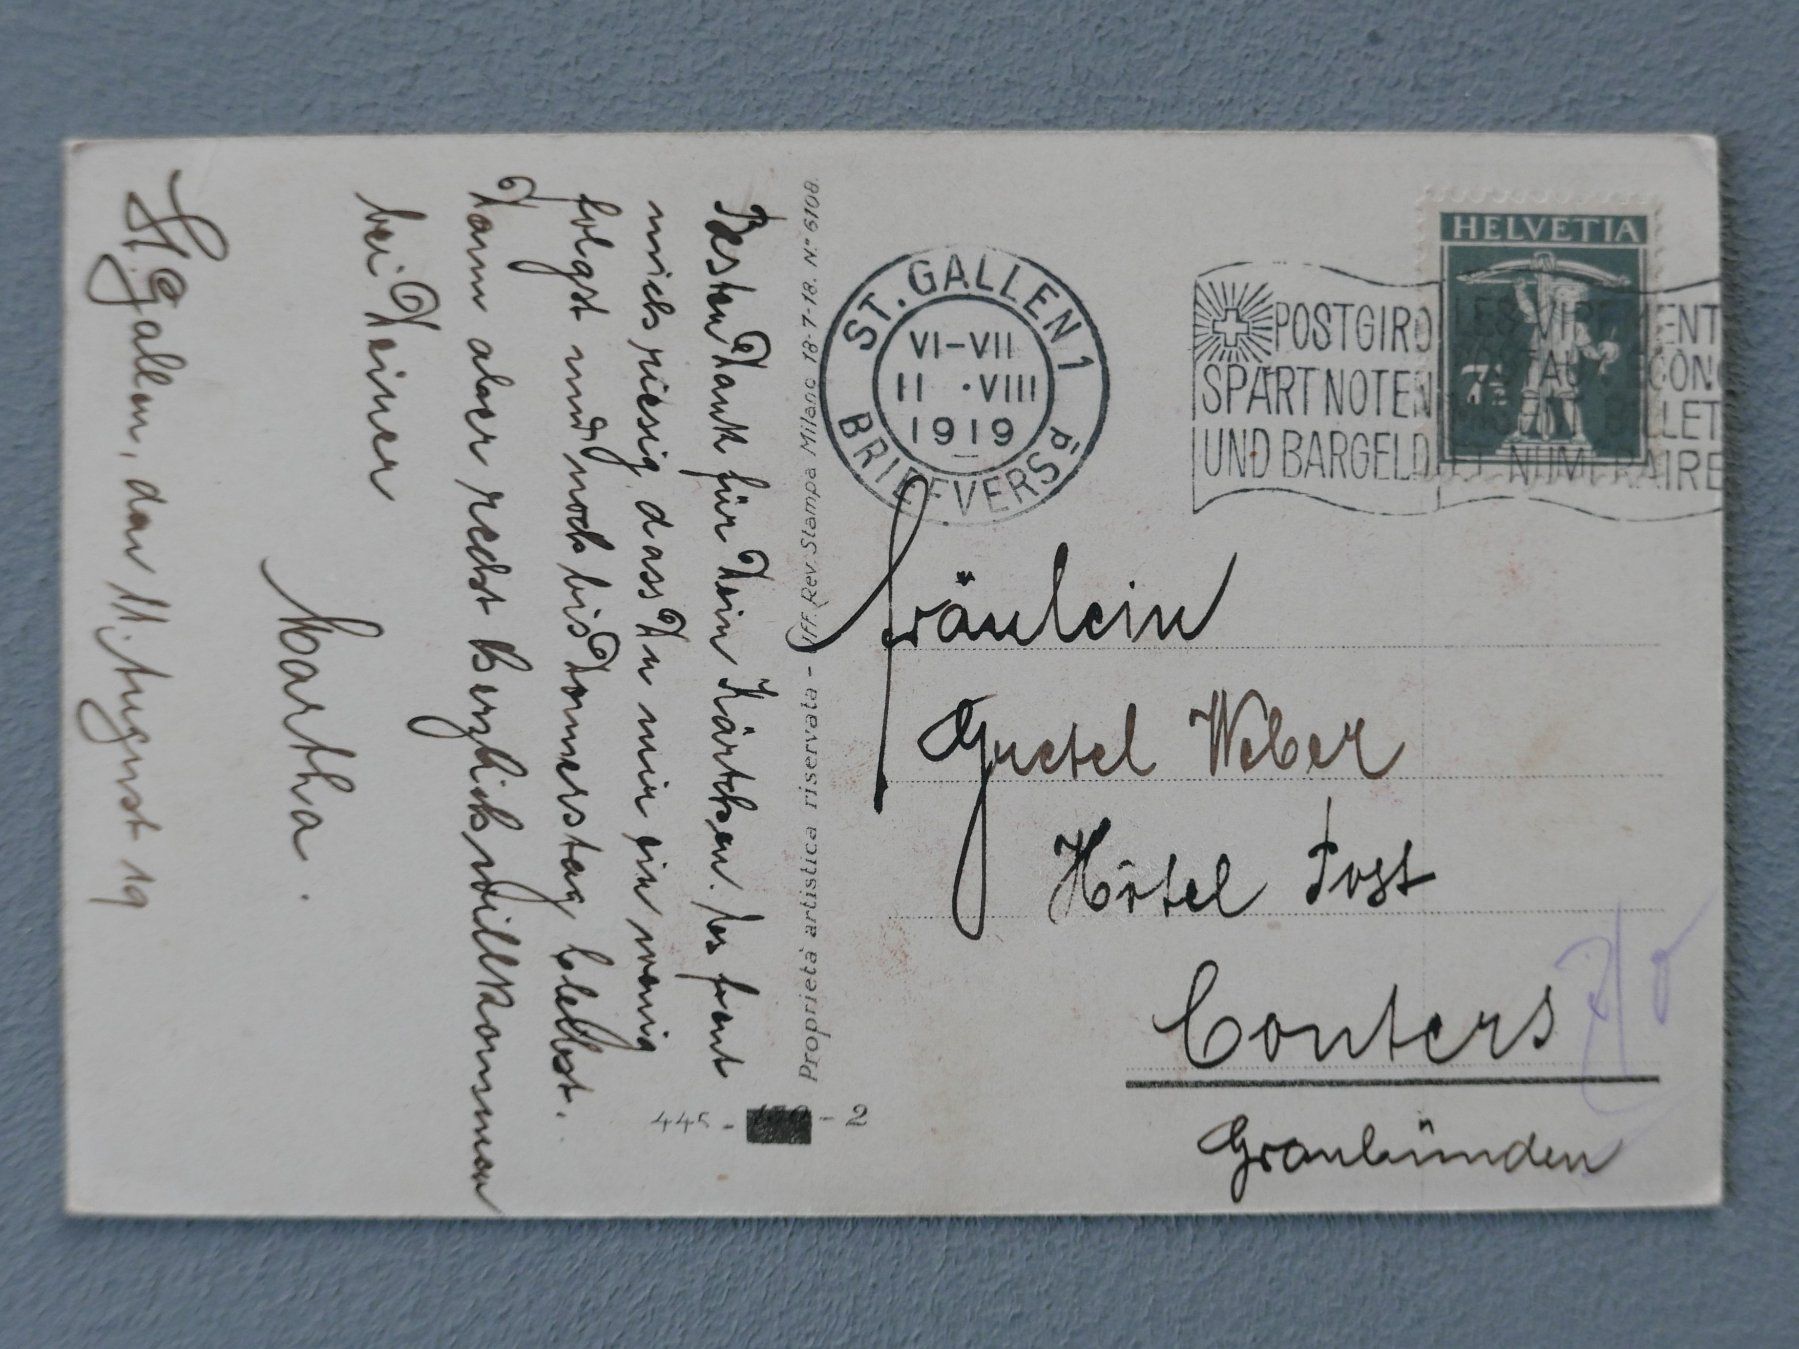 St. Gallen, den 11. August 19
Besten Dank für Dein Kärtchen. Es freut
mich riesig, dass Du mir ein wenig
folgst und noch bis Donnerstag bleibst.
Dann aber recht herzlich willkommen
bei Deiner
Martha.
Proprietà artistica riservata - Uff. Rev. Stampa Milano 18-7-18. N° 6108.
445 - - 2
ST. GALLEN 1
VI-VII
11 ·VIII
1919
BRIEFVERSd
POSTGIRO
SPART NOTEN
UND BARGELD
LES VIREMENT
POSTAUX ÉCON
BILLET
ET NUMÉRAIRE
HELVETIA
7½
Fräulein
Gretel Weber
Hôtel Post
Conters
Graubünden